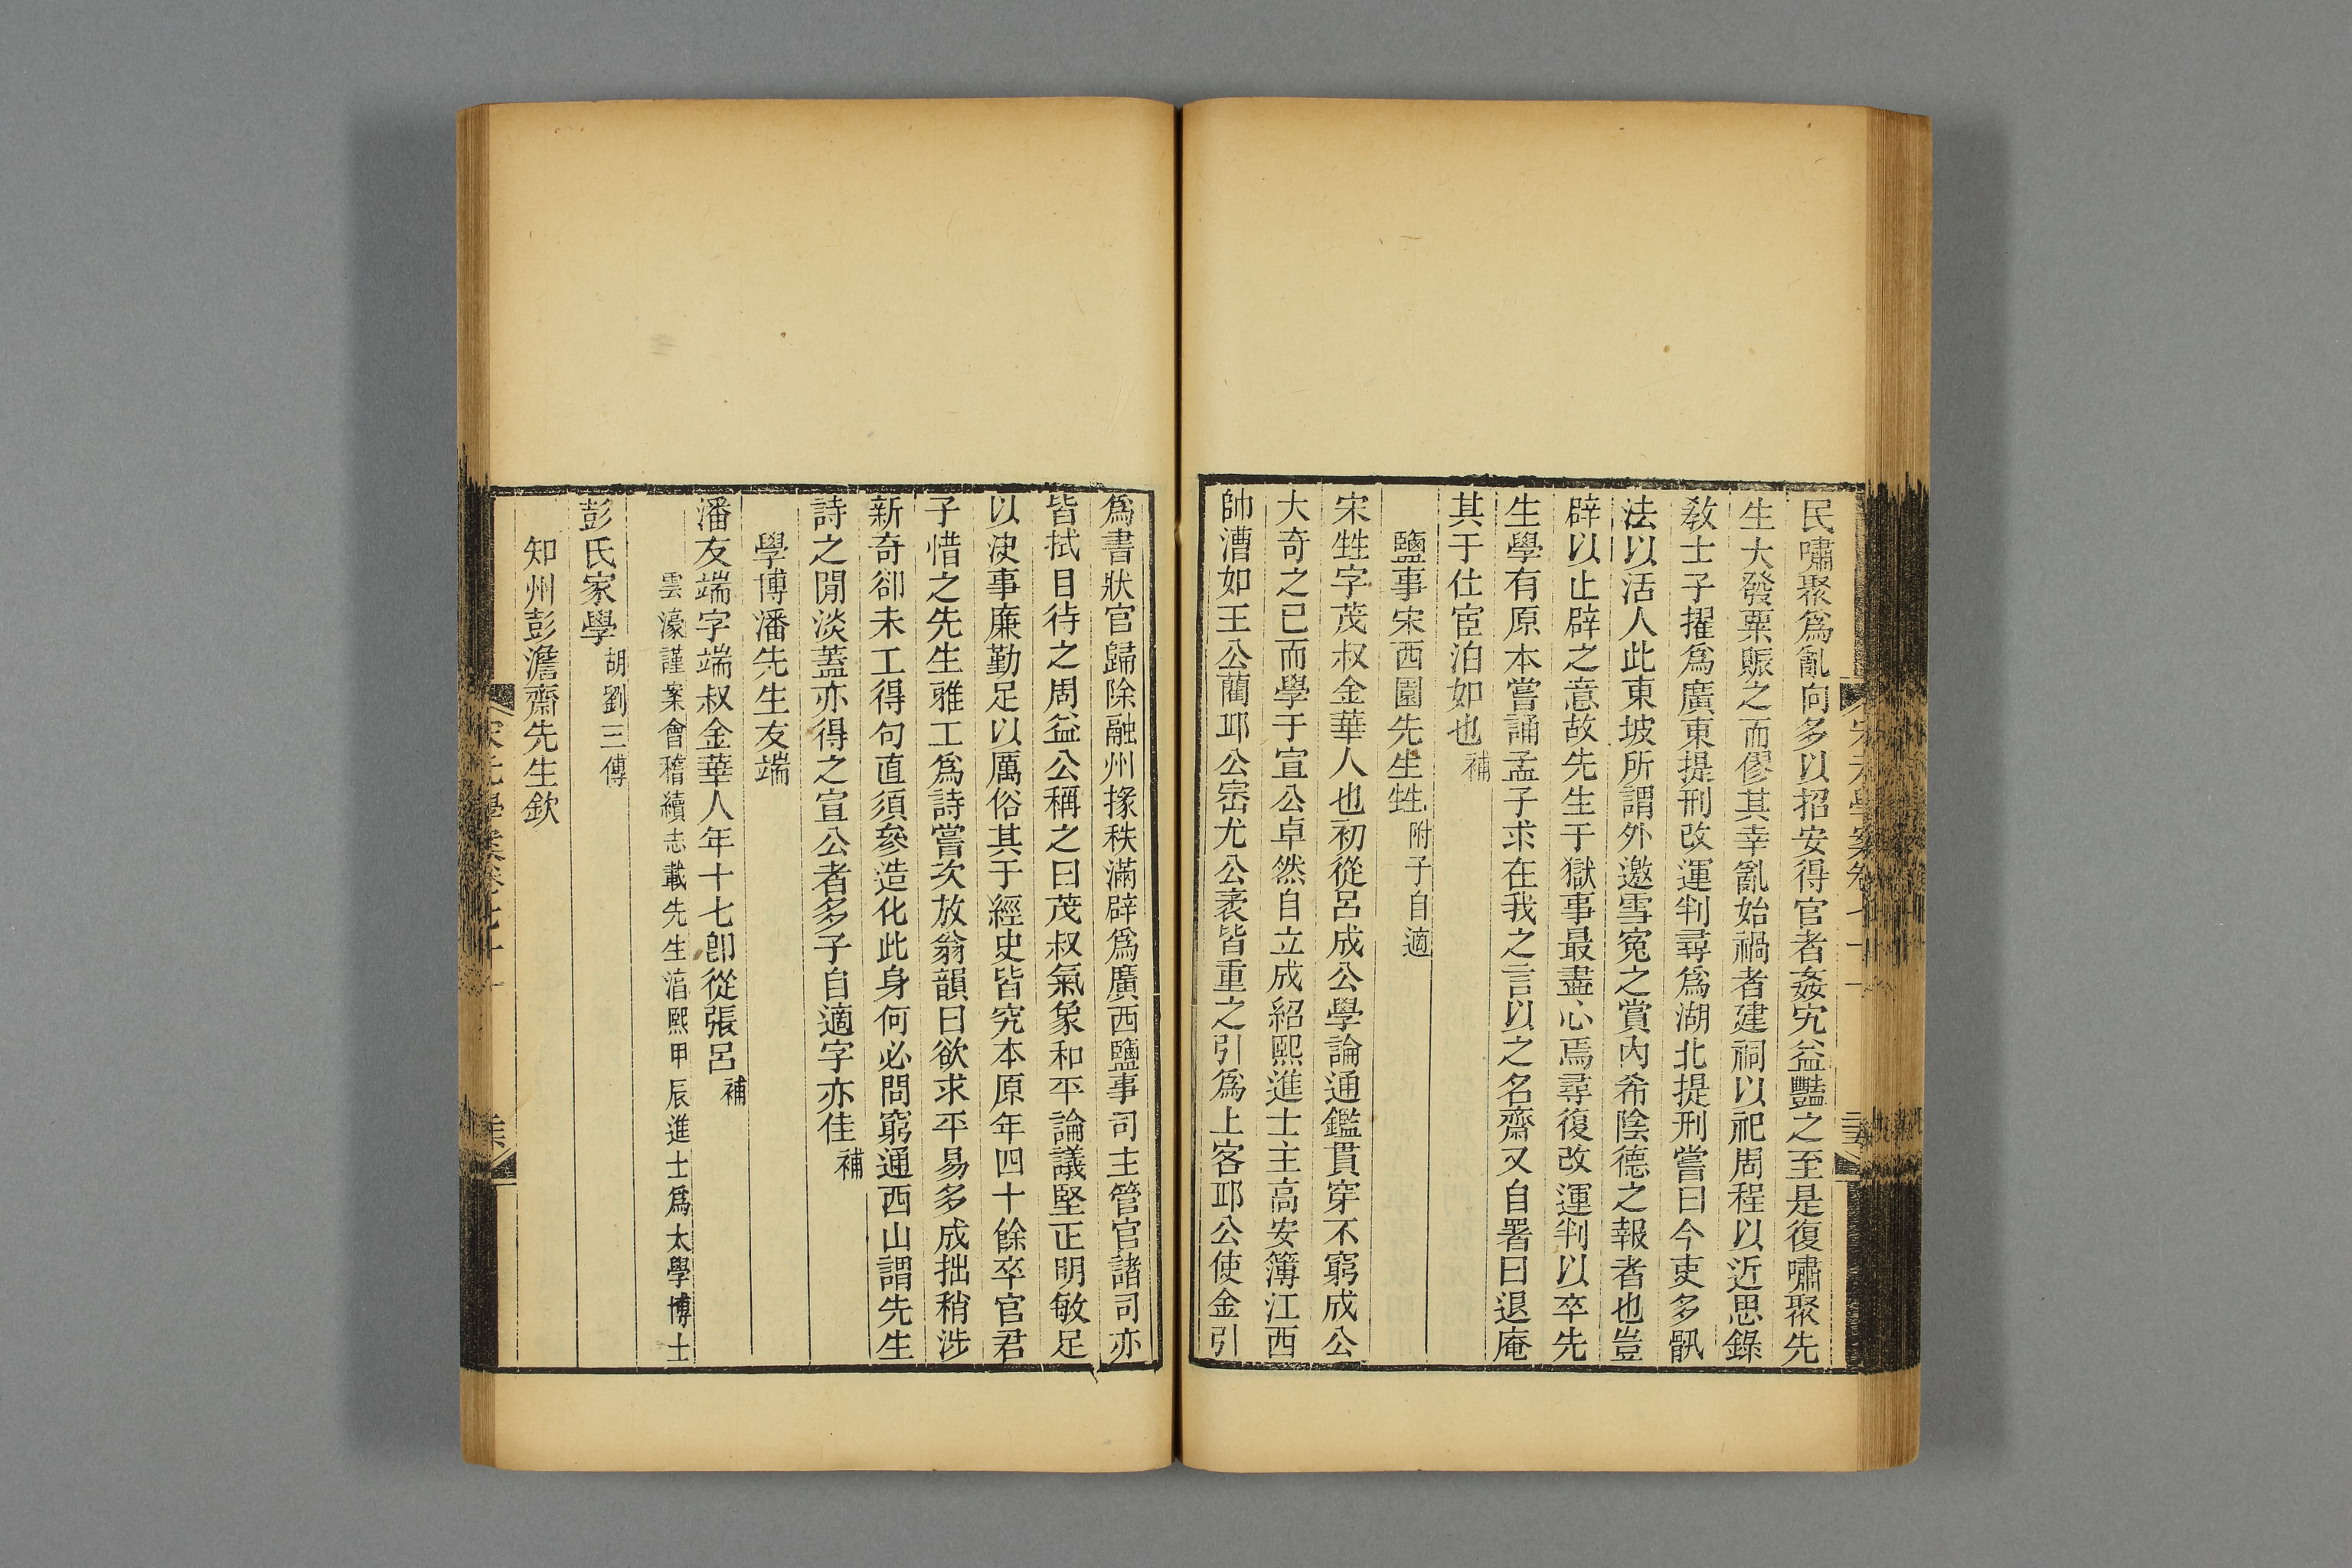 民嘯聚爲亂向多以招安得官者姦宄益豔之至是復嘯聚先
生大發粟賑之而僇其幸亂始禍者建祠以祀周程以近思錄
敎士子擢爲廣東提刑改運判尋爲湖北提刑嘗曰今吏多骫
法以活人此東坡所謂外邀雪冤之賞內希陰德之報者也豈
辟以止辟之意故先生于獄事最盡心焉尋復改運判以卒先
生學有原本嘗誦孟子求在我之言以之名齋又自署曰退庵
其于仕宦泊如也補
鹽事宋西園先生甡附子自適
宋甡字茂叔金華人也初從呂成公學論通鑑貫穿不窮成公
大奇之已而學于宣公卓然自立成紹熙進士主高安簿江西
帥漕如王公藺邱公崈尤公袤皆重之引爲上客邱公使金引
爲書狀官歸除融州掾秩滿辟爲廣西鹽事司主管官諸司亦
皆拭目待之周益公稱之曰茂叔氣象和平論議堅正明敏足
以決事廉勤足以厲俗其于經史皆究本原年四十餘卒官君
子惜之先生雅工爲詩嘗次放翁韻曰欲求平易多成拙稍涉
新奇卻未工得句直須參造化此身何必問窮通西山謂先生
詩之閒淡蓋亦得之宣公者多子自適字亦佳補
學博潘先生友端
潘友端字端叔金華人年十七卽從張呂補
雲濠謹案會稽續志載先生湻熙甲辰進士爲太學博士
彭氏家學胡劉三傳
知州彭澹齋先生欽
宋元學案卷七十一